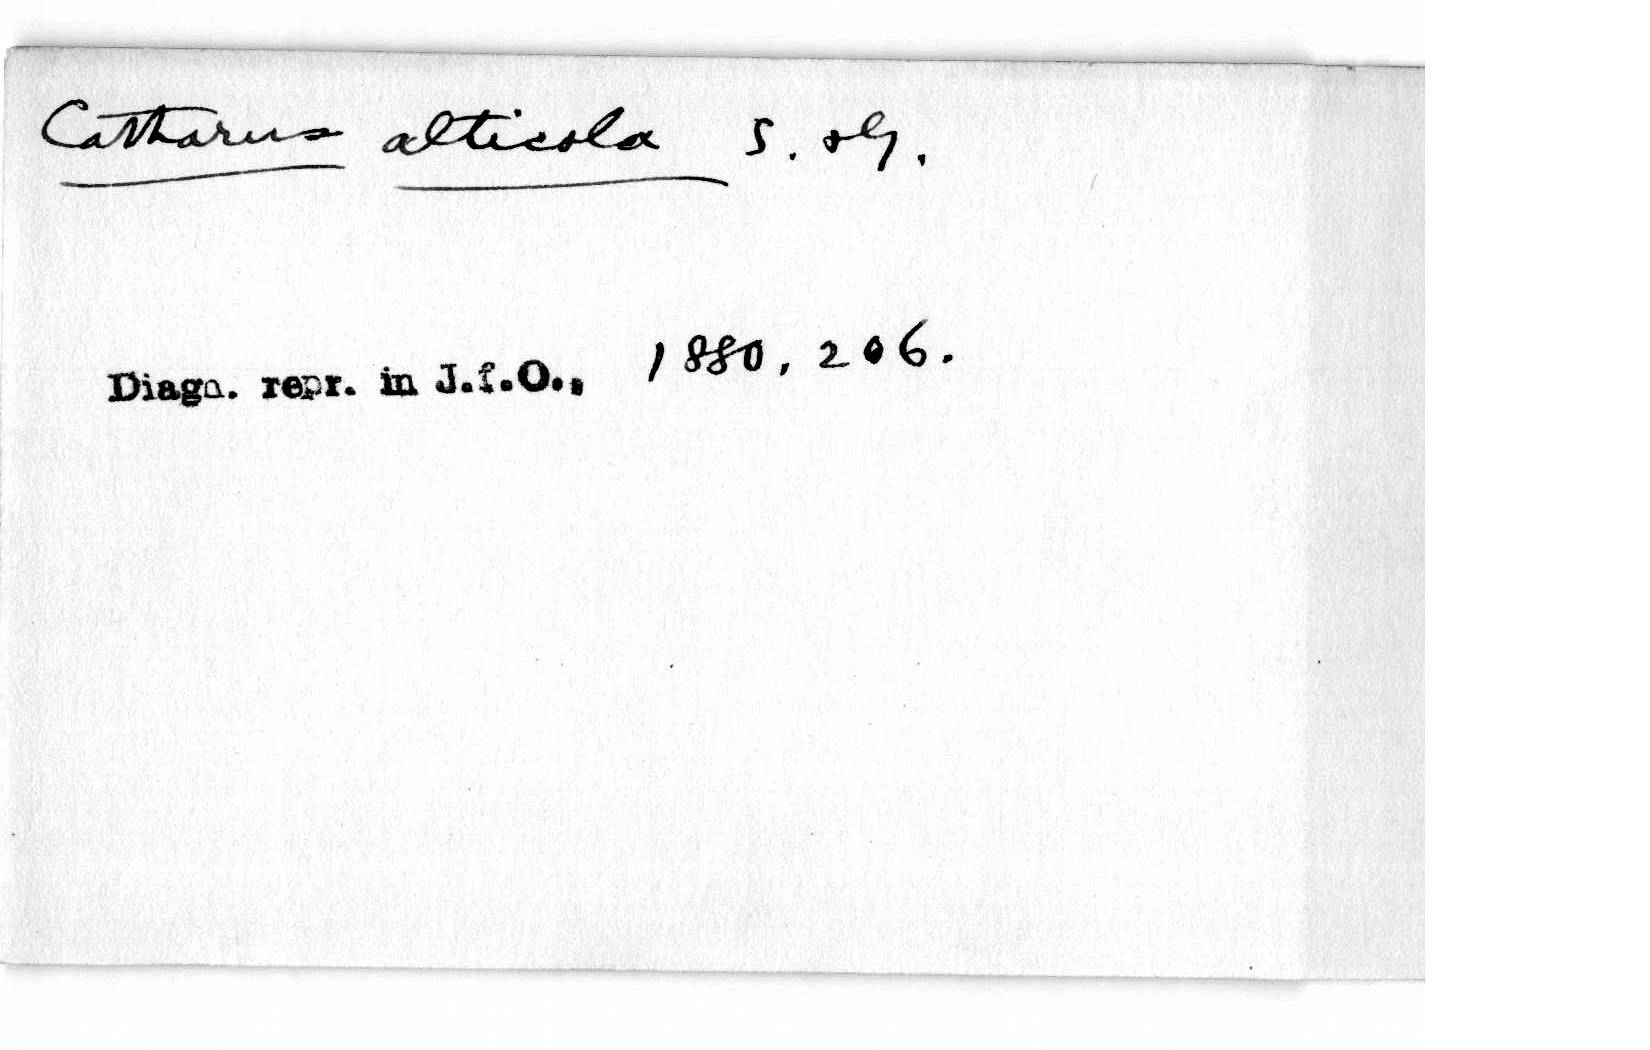 Catharus alticola S. & G.
Diagn. repr. in J.f.O., 1880, 206.